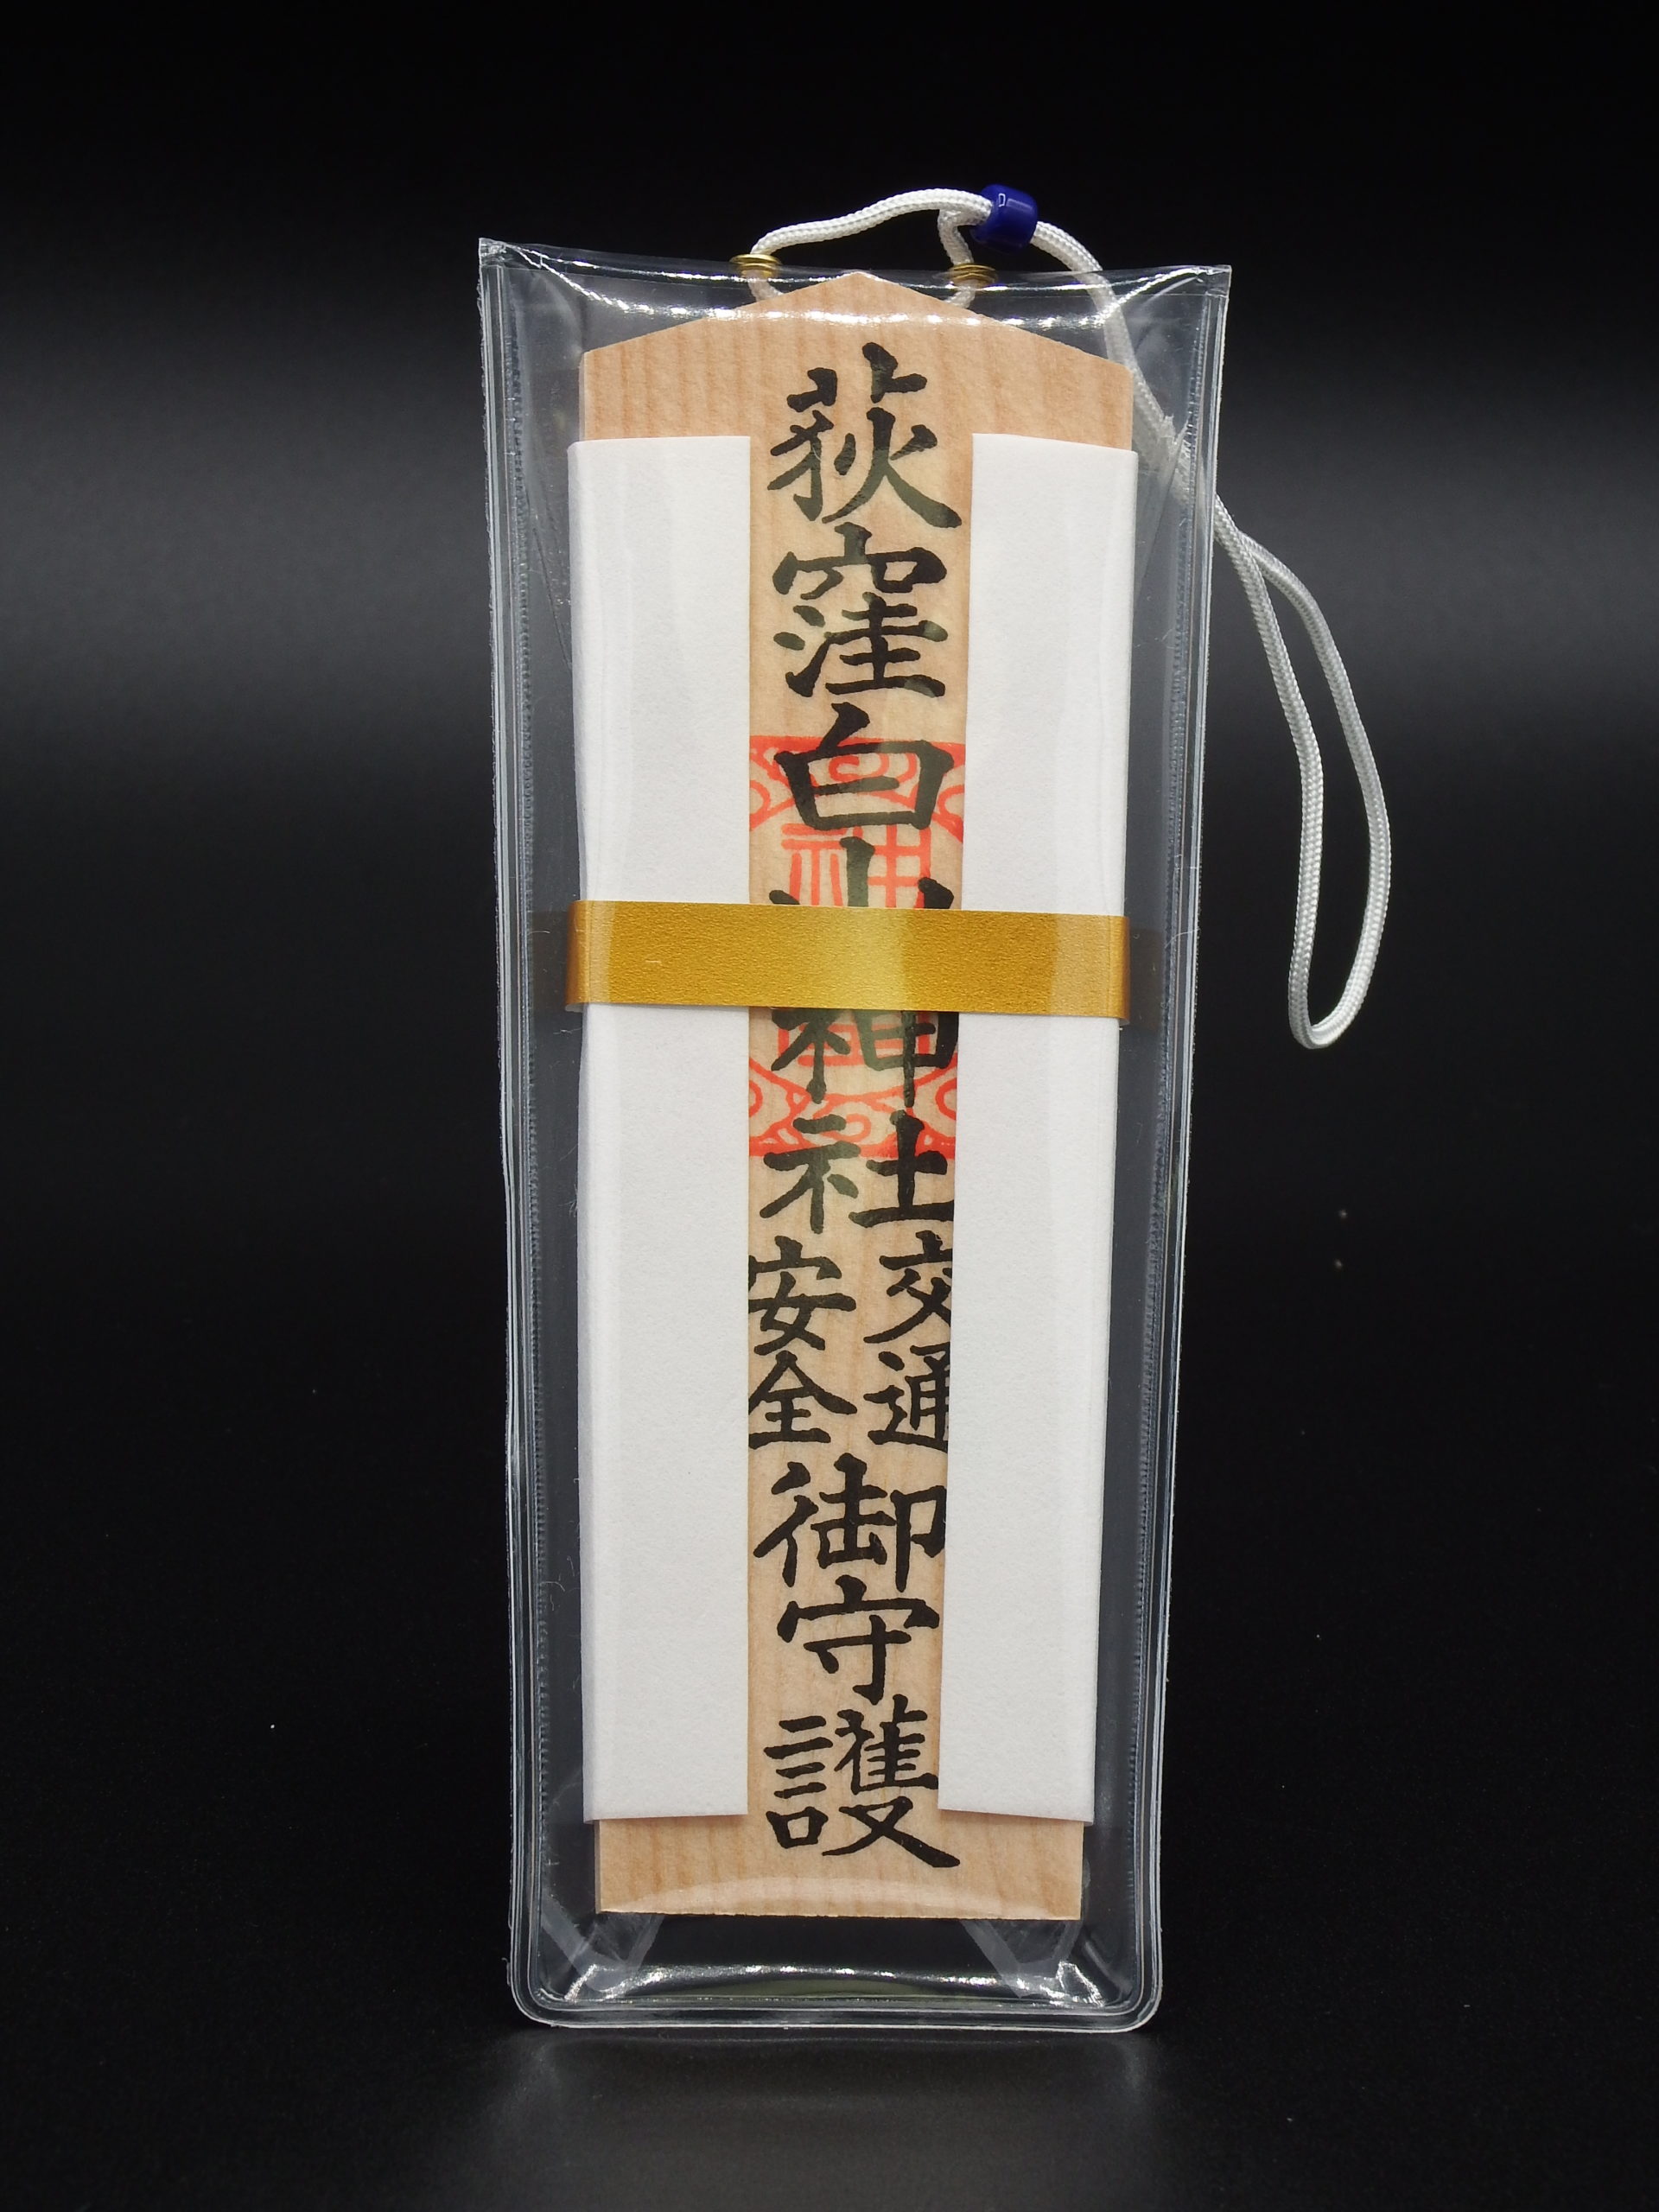 荻窪白山神社
交通
安全
御守護